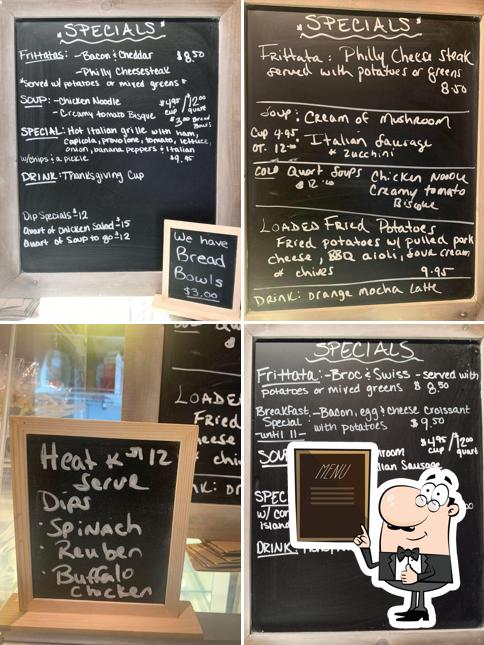 SPECIALS
Frittatas: - Bacon & Cheddar $8.50
- Philly Cheesesteak
*Served w/ potatoes or mixed greens*
SOUP: - Chicken Noodle $4.95 cup / $12.00 quart
- Creamy tomato Bisque $3.00 Bread Bowls
SPECIAL: Hot Italian grille with ham,
capicola, provolone, tomato, lettuce,
onion, banana peppers & Italian
w/chips & a pickle $9.95
DRINK: Thanksgiving Cup
Dip Specials $12
Quart of Chicken Salad $15
Quart of Soup to go $12
We have
Bread
Bowls
$3.00
SPECIALS
Frittata: Philly Cheese Steak
served with potatoes or greens
8.50
Soup: Cream of Mushroom
Cup 4.95
QT. 12.00 Italian Sausage
& Zucchini
COLD Quart Soups Chicken Noodle
$12.00 Creamy tomato
Biscque
LOADED Fried Potatoes
Fried potatoes w/ pulled pork
cheese, BBQ aioli, sour cream
& chives 9.95
DRINK: orange mocha latte
Heat & $12
serve
Dips
· Spinach
· Reuben
· Buffalo
chicken
LOADE
Fried
cheese
& chi
NK: or
SPECIALS
Frittata: - Broc & Swiss - served with
potatoes or mixed greens $8.50
Breakfast - Bacon, egg & cheese croissant
Special with potatoes $9.50
-until 11-
$4.95 cup / $12.00 quart
SOU room
lian Sausage
SPEC
w/ cor
island
DRINK:
MENU